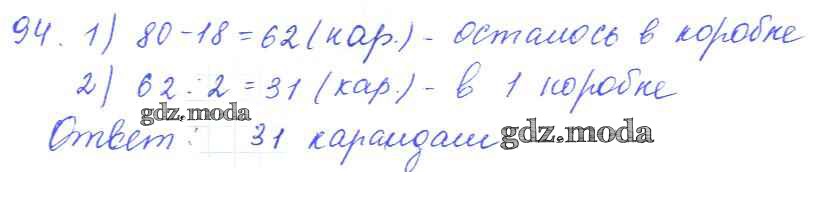 94. 1) 80-18=62 (кар.) - осталось в коробке
2) 62:2=31 (кар.) - в 1 коробке
gdz.moda
Ответ: 31 карандаш gdz.moda